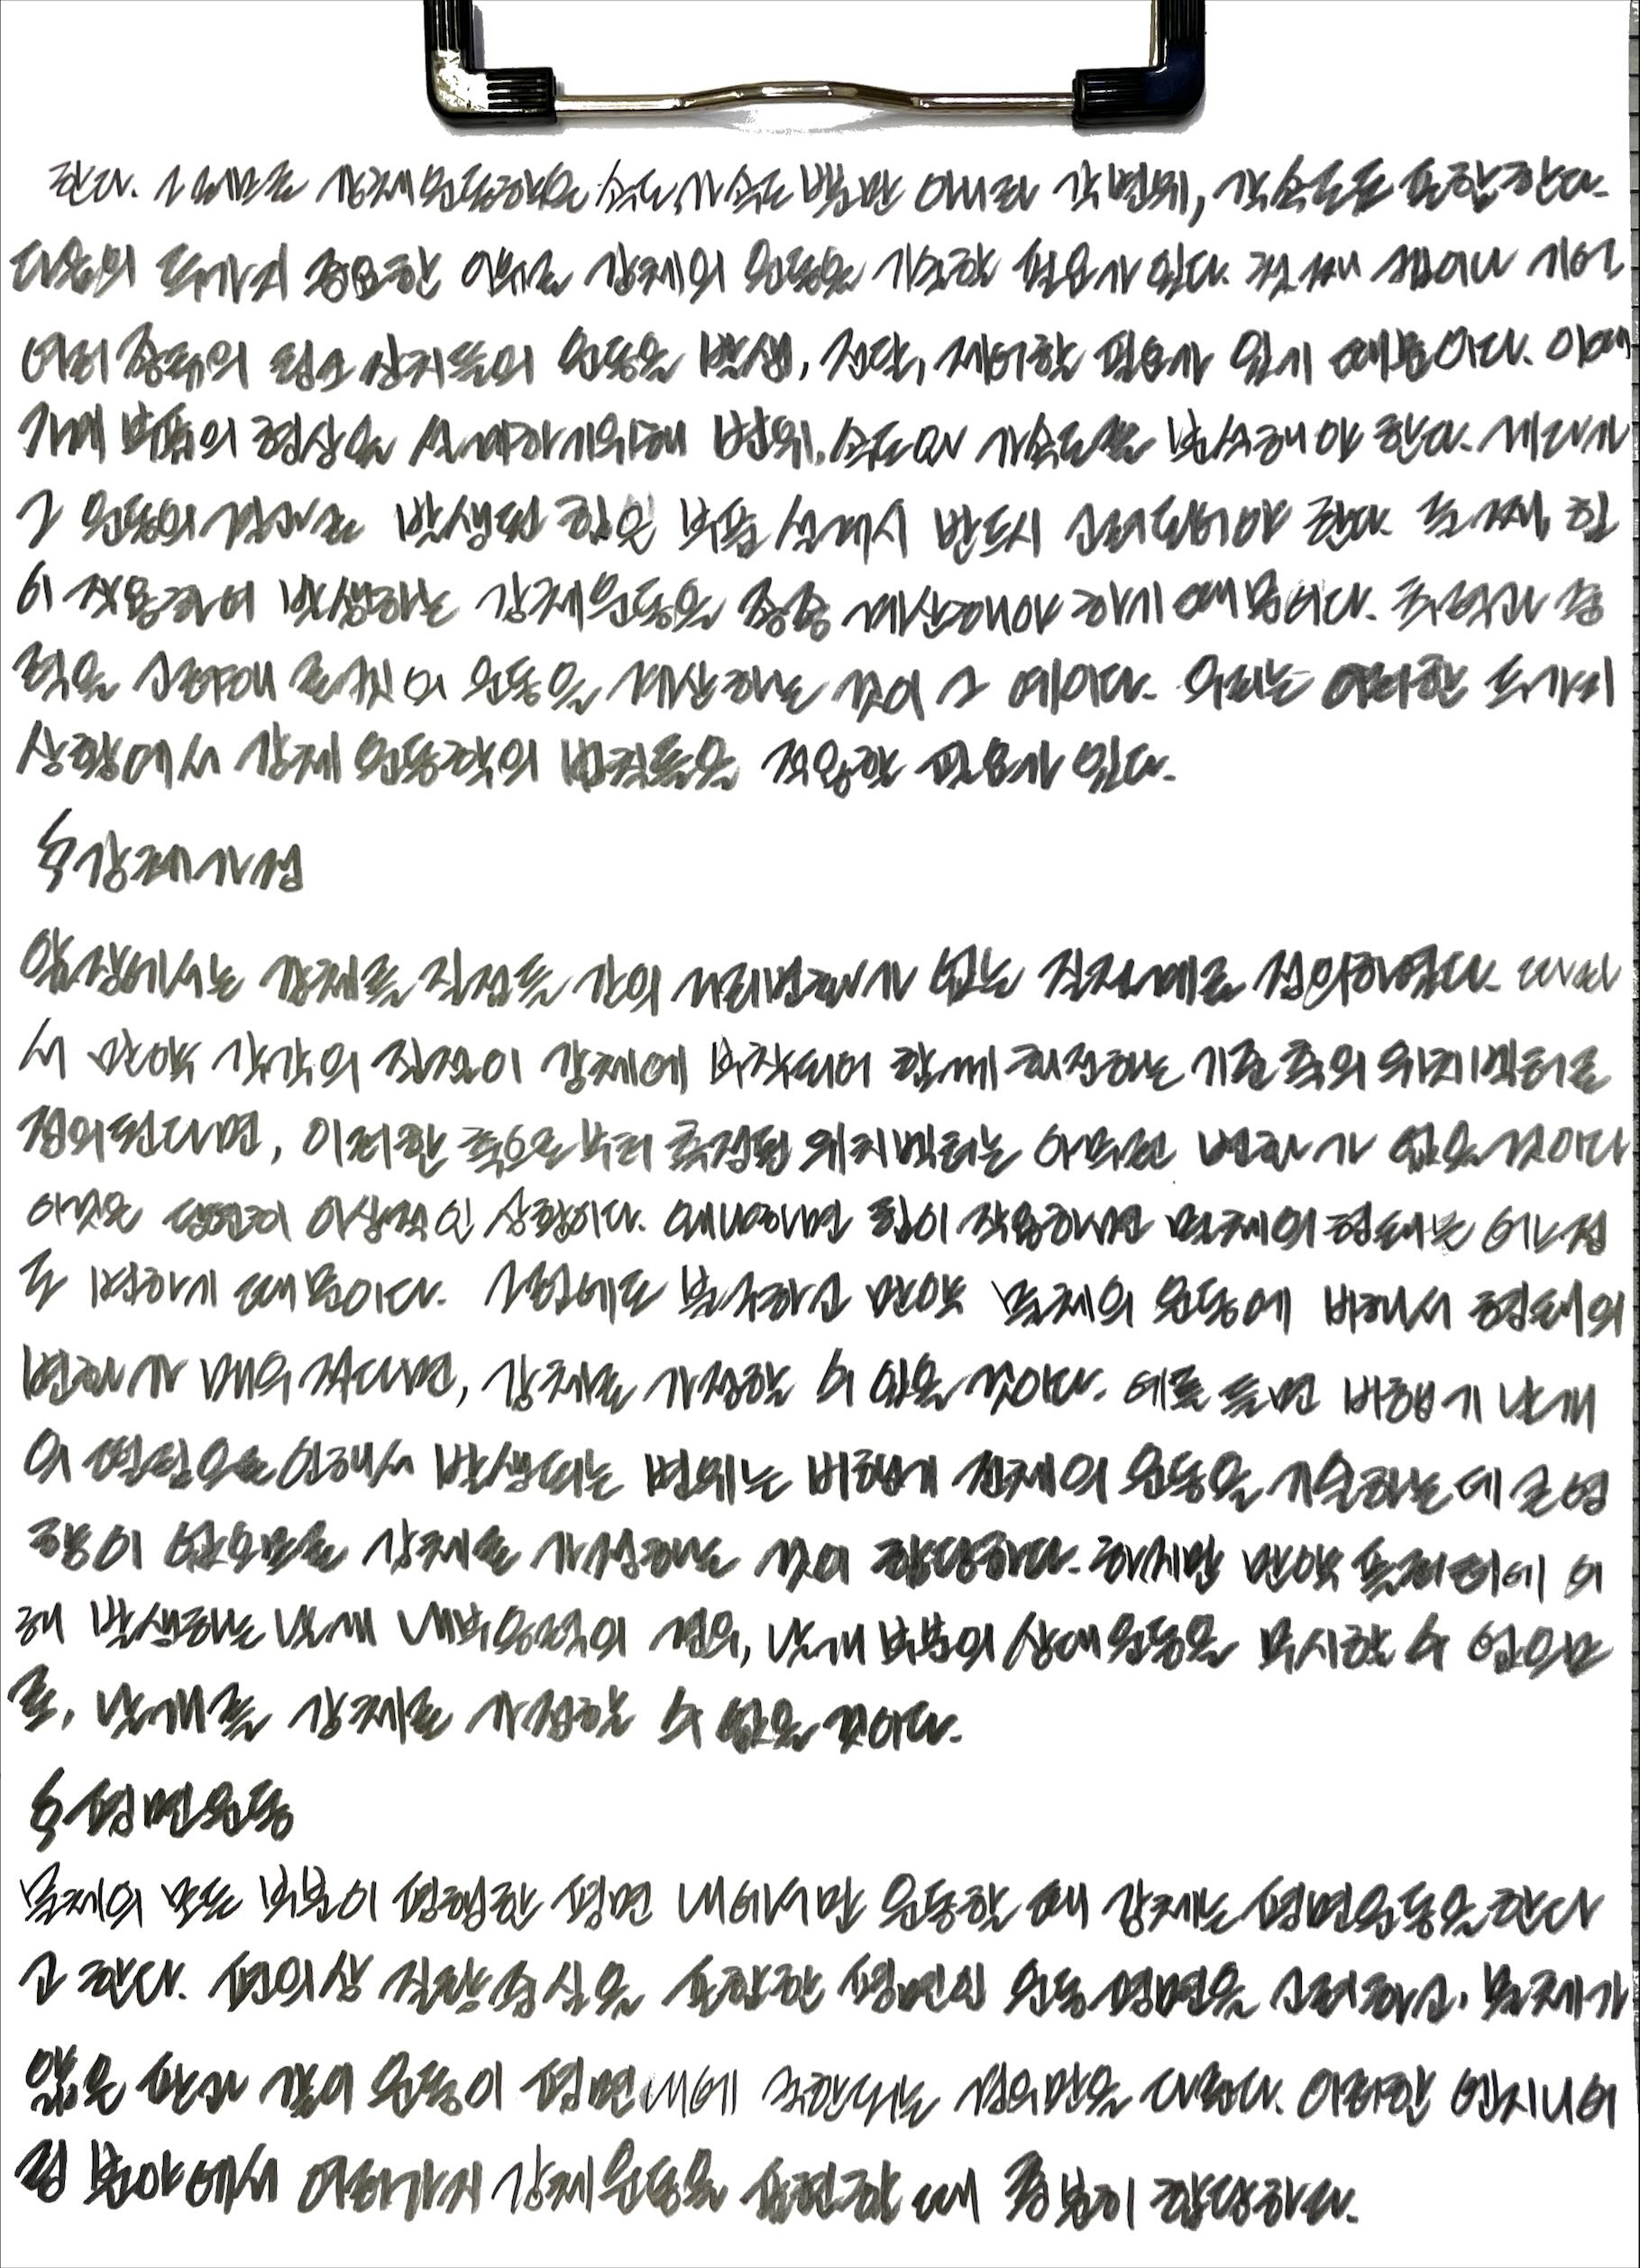 한다. 그러므로 강체 운동학은 속도, 가속도 뿐만 아니라 각변위, 각속도도 포함한다.
다음의 두가지 중요한 이유로 강체의 운동을 기술할 필요가 있다. 첫째 캠이나 기어
여러 종류의 링크 장치들의 운동을 발생, 전달, 제어할 필요가 있기 때문이다. 이때
기계 부품의 형상을 설계하기위해 변위, 속도 및 가속도를 분석해야 한다. 게다가
그 운동의 결과로 발생된 힘은 부품 설계시 반드시 고려되어야 한다. 둘째, 힘
이 작용하여 발생하는 강체운동을 종종 계산해야 하기 때문이다. 추력과 중
력을 고려해 로켓의 운동을 계산하는 것이 그 예이다. 우리는 이러한 두가지
상황에서 강체 운동학의 법칙들을 적용할 필요가 있다.
강체가정
앞장에서는 강체를 질점들 간의 거리변화가 없는 질점계로 정의하였다. 따라
서 만약 각각의 질점이 강체에 부착되어 함께 회전하는 기준 축의 위치벡터로
정의된다면, 이러한 축으로부터 측정된 위치벡터는 아무런 변화가 없을 것이다
이것은 당연히 이상적인 상황이다. 왜냐하면 힘이 작용하면 물체의 형태는 어느정
도 변하기 때문이다. 그럼에도 불구하고 만약 물체의 운동에 비해서 형태의
변화가 매우 작다면, 강체로 가정할 수 있을 것이다. 예를 들면 비행기 날개
의 떨림으로 인해서 발생되는 변위는 비행기 전체의 운동을 기술하는데 큰 영
향이 없으므로 강체로 가정하는 것이 합당하다. 하지만 만약 플러터에 의
해 발생하는 날개 내부응력의 경우, 날개 부분의 상대운동을 무시할 수 없으므
로, 날개를 강체로 가정할 수 없을 것이다.
평면운동
물체의 모든 부분이 평행한 평면 내에서만 운동할 때 강체는 평면운동을 한다
고 한다. 편의상 질량중심을 포함한 평면인 운동 평면을 고려하고, 물체가
얇은 판과 같이 운동이 평면내에 국한되는 경우만을 다룬다. 이러한 엔지니어
링 분야에서 여러가지 강체운동을 표현할 때 충분히 합당하다.